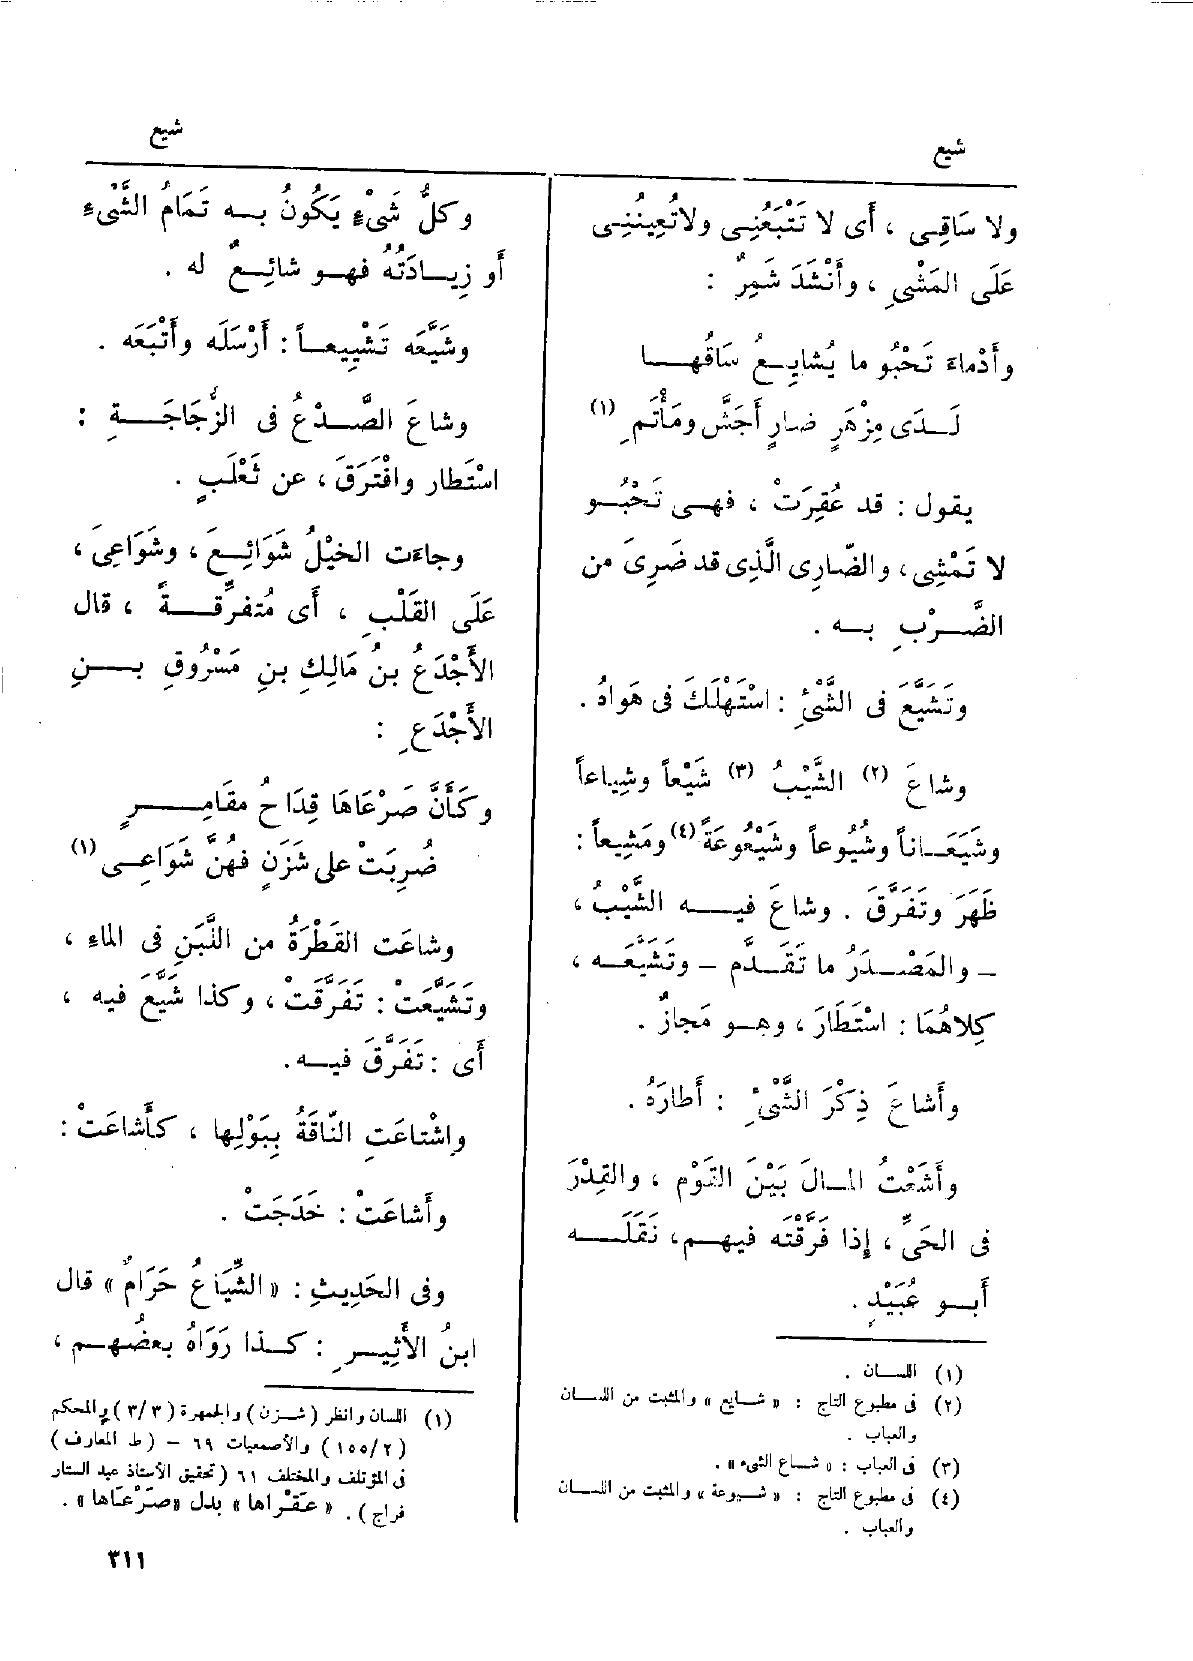 شيع
شيع
ولا سَاقِى ، أَى لا تَتْبَعُنِى ولاتُعِينُنِى
عَلَى المَشْىِ ، وأَنْشَدَ شَمِرٌ :
وأَدْماءَ تَحْبُو ما يُشايِعُ سَاقُها
لَدَى مِزْهَرٍ ضارٍ أَجَشَّ ومَأْتَمِ (١)
يقول : قد عُقِرَتْ ، فهى تَحْبُو
لا تَمْشِى، والضّارِى الَّذِى قد ضَرِىَ من
الضَّرْبِ به .
وتَشَيَّعَ فى الشَّىْءِ : اسْتَهْلَكَ فى هَواهُ .
وشاعَ (٢) الشَّيْبُ (٣) شَيْعاً وشِياعاً
وشَيَعَاناً وشُيُوعاً وشَيْعُوعَةً(٤) ومَشِيعاً :
ظَهَرَ وتَفَرَّقَ . وشاعَ فيه الشَّيْبُ ،
– والمَصْدَرُ ما تَقَدَّم – وتَشَيَّعَه ،
كِلاهُمَا : اسْتَطَارَ ، وهو مَجازٌ .
وأَشاعَ ذِكْرَ الشَّىْءِ : أَطارَهُ .
وأَشَعْتُ المالَ بَيْنَ القَوْمِ ، والقِدْرَ
فى الحَىِّ ، إِذا فَرَّقْتَه فيهم، نَقَلَه
أَبو عُبَيْدٍ .
(١) اللسان .
(٢) فى مطبوع التاج : « شايع » والمثبت من اللسان
والعباب .
(٣) فى العباب : « شاع الشىء » .
(٤) فى مطبوع التاج : « شيوعة » والمثبت من اللسان
والعباب .
وكلُّ شَىْءٍ يَكُونُ به تَمَامُ الشَّىْءِ
أَو زِيادَتُهُ فهو شائِعٌ له .
وشَيَّعَه تَشْيِيعاً : أَرْسَلَه وأَتْبَعَه .
وشاعَ الصَّدْعُ فى الزُّجَاجَةِ :
اسْتَطار وافْتَرَقَ ، عن ثَعْلَبٍ .
وجاءَت الخَيْلُ شَوَائِعَ ، وشَوَاعِىَ ،
عَلَى القَلْبِ ، أَى مُتفرِّقةً ، قال
الأَجْدَعُ بنُ مَالِكِ بنِ مَسْرُوقِ بنِ
الأَجْدَعِ :
وكَأَنَّ صَرْعَاهَا قِدَاحُ مقَامِرٍ
ضُرِبَتْ على شَزَنٍ فهُنَّ شَوَاعِى (١)
وشاعَت القَطْرَةُ من اللَّبَنِ فى الماءِ ،
وتَشَيَّعَتْ : تَفَرَّقَتْ ، وكذا شَيَّعَ فيه ،
أَى : تَفَرَّقَ فيه.
واشْتاعَتِ النّاقَةُ بِبَوْلِها ، كأَشاعَتْ :
وأَشاعَتْ : خَدَجَتْ .
وفى الحَدِيثِ : « الشِّيَاعُ حَرَامٌ » قال
ابنُ الأَثِيرِ : كذا رَوَاهُ بعضُهم ،
(١) اللسان وانظر (شزن) والجمهرة (٣/٣) والمحكم
(١٥٥/٢) والأصمعيات ٦٩ – (ط المعارف)
فى المؤتلف والمختلف ٦١ (تحقيق الأستاذ عبد الستار
فراج) . « عَقْراها » بدل «صَرْعَاها » .
٣١١